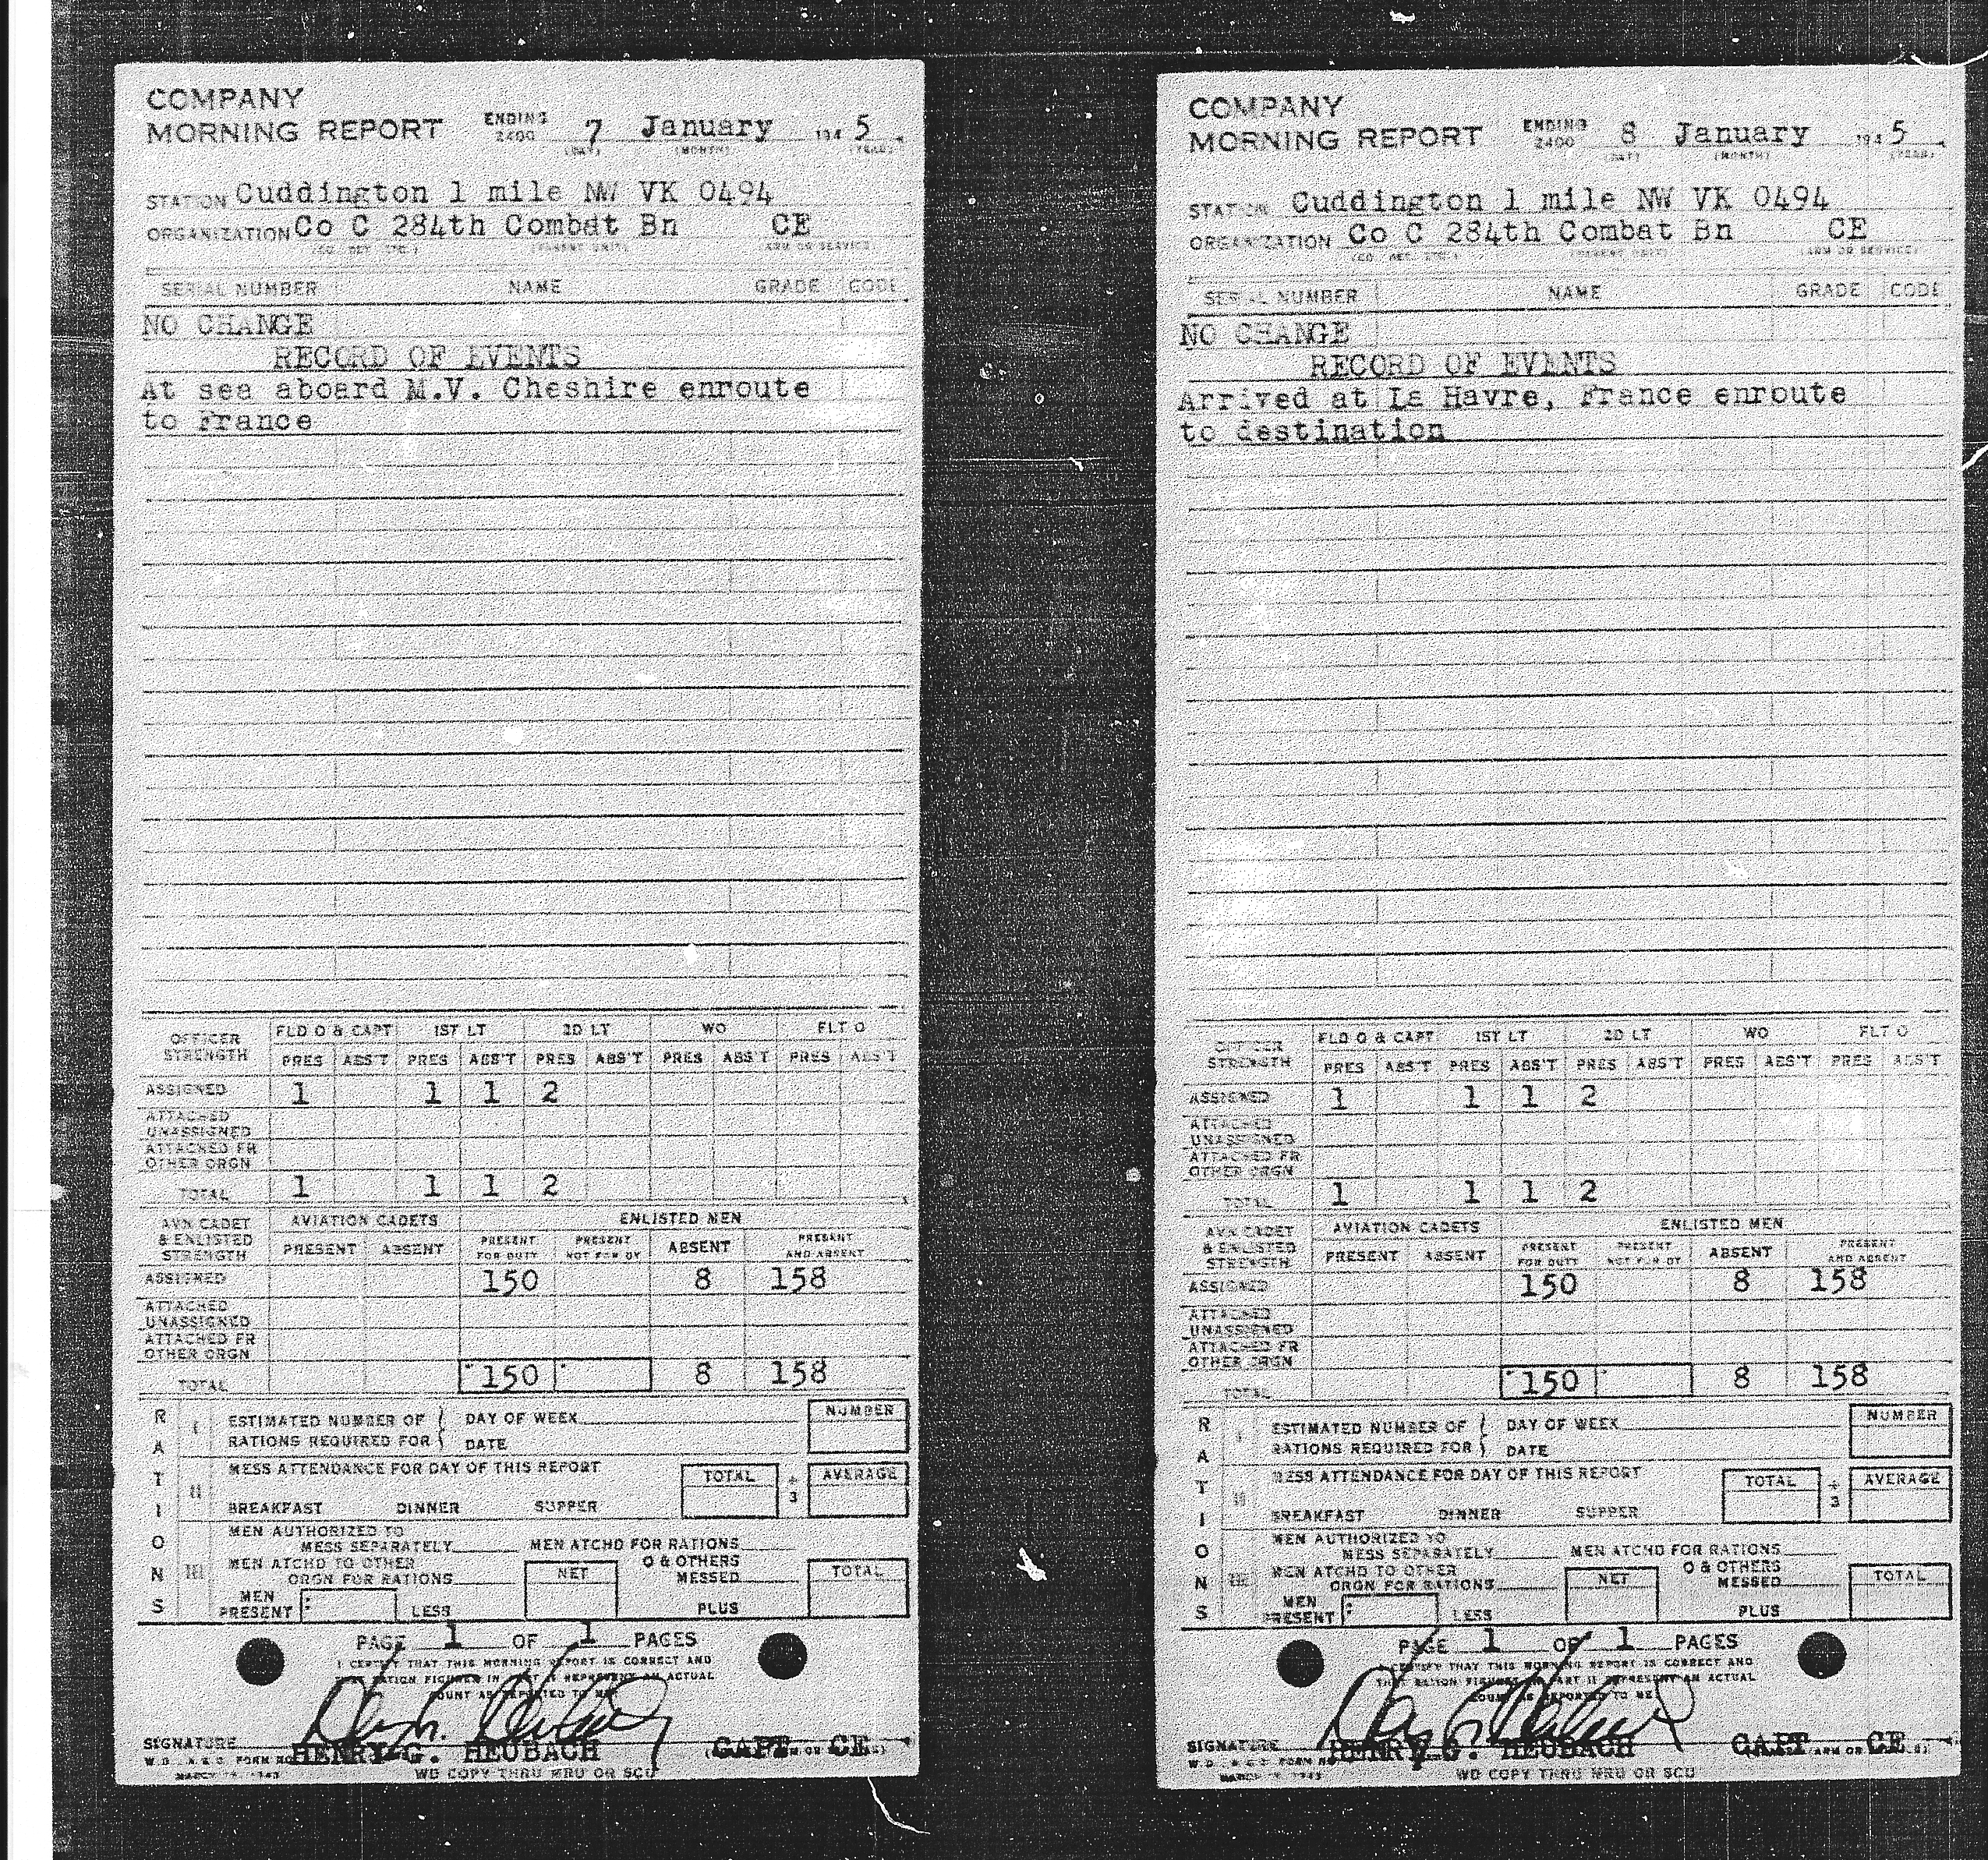 COMPANY
MORNING REPORT ENDING 2400 7 January 194 5
(DAY) (MONTH) (YEAR)
STATION Cuddington 1 mile NW VK 0494
ORGANIZATION Co C 284th Combat Bn CE
(CO. DET. ETC.) (PARENT UNIT) (ARM OR SERVICE)
SERIAL NUMBER NAME GRADE CODE
NO CHANGE
RECORD OF EVENTS
At sea aboard M.V. Cheshire enroute
to France
OFFICER STRENGTH FLD O & CAPT 1ST LT 2D LT WO FLT O
PRES ABS'T PRES ABS'T PRES ABS'T PRES ABS'T PRES ABS'T
ASSIGNED 1 1 1 2
ATTACHED UNASSIGNED
ATTACHED FR OTHER ORGN
TOTAL 1 1 1 2
AVN CADET & ENLISTED STRENGTH AVIATION CADETS ENLISTED MEN
PRESENT ABSENT PRESENT FOR DUTY PRESENT NOT FOR DY ABSENT PRESENT AND ABSENT
ASSIGNED 150 8 158
ATTACHED UNASSIGNED
ATTACHED FR OTHER ORGN
TOTAL 150 8 158
RATIONS
I ESTIMATED NUMBER OF DAY OF WEEK NUMBER
RATIONS REQUIRED FOR DATE
II MESS ATTENDANCE FOR DAY OF THIS REPORT TOTAL ÷ 3 AVERAGE
BREAKFAST DINNER SUPPER
III MEN AUTHORIZED TO
MESS SEPARATELY MEN ATCHD FOR RATIONS
MEN ATCHD TO OTHER
ORGN FOR RATIONS NET O & OTHERS MESSED TOTAL
MEN PRESENT : LESS PLUS
PAGE 1 OF 1 PAGES
I CERTIFY THAT THIS MORNING REPORT IS CORRECT AND
RATION FIGURES IN REPRESENT AN ACTUAL
COUNT AS REPORTED TO ME
SIGNATURE HENRY G. HEUBACH CAPT CE
W.D. A.G.O. FORM NO
MARCH 1943 WD COPY THRU MRU OR SCU
COMPANY
MORNING REPORT ENDING 2400 8 January 194 5
(DAY) (MONTH) (YEAR)
STATION Cuddington 1 mile NW VK 0494
ORGANIZATION Co C 284th Combat Bn CE
(CO. DET. ETC.) (PARENT UNIT) (ARM OR SERVICE)
SERIAL NUMBER NAME GRADE CODE
NO CHANGE
RECORD OF EVENTS
Arrived at Le Havre, France enroute
to destination
OFFICER STRENGTH FLD O & CAPT 1ST LT 2D LT WO FLT O
PRES ABS'T PRES ABS'T PRES ABS'T PRES ABS'T PRES ABS'T
ASSIGNED 1 1 1 2
ATTACHED UNASSIGNED
ATTACHED FR OTHER ORGN
TOTAL 1 1 1 2
AVN CADET & ENLISTED STRENGTH AVIATION CADETS ENLISTED MEN
PRESENT ABSENT PRESENT FOR DUTY PRESENT NOT FOR DY ABSENT PRESENT AND ABSENT
ASSIGNED 150 8 158
ATTACHED UNASSIGNED
ATTACHED FR OTHER ORGN
TOTAL 150 8 158
RATIONS
I ESTIMATED NUMBER OF DAY OF WEEK NUMBER
RATIONS REQUIRED FOR DATE
II MESS ATTENDANCE FOR DAY OF THIS REPORT TOTAL ÷ 3 AVERAGE
BREAKFAST DINNER SUPPER
III MEN AUTHORIZED TO
MESS SEPARATELY MEN ATCHD FOR RATIONS
MEN ATCHD TO OTHER
ORGN FOR RATIONS NET O & OTHERS MESSED TOTAL
MEN PRESENT : LESS PLUS
PAGE 1 OF 1 PAGES
I CERTIFY THAT THIS MORNING REPORT IS CORRECT AND
THAT RATION FIGURES IN PART II REPRESENT AN ACTUAL
COUNT AS REPORTED TO ME
SIGNATURE HENRY G. HEUBACH CAPT CE
W.D. A.G.O. FORM NO
MARCH 1943 WD COPY THRU MRU OR SCU